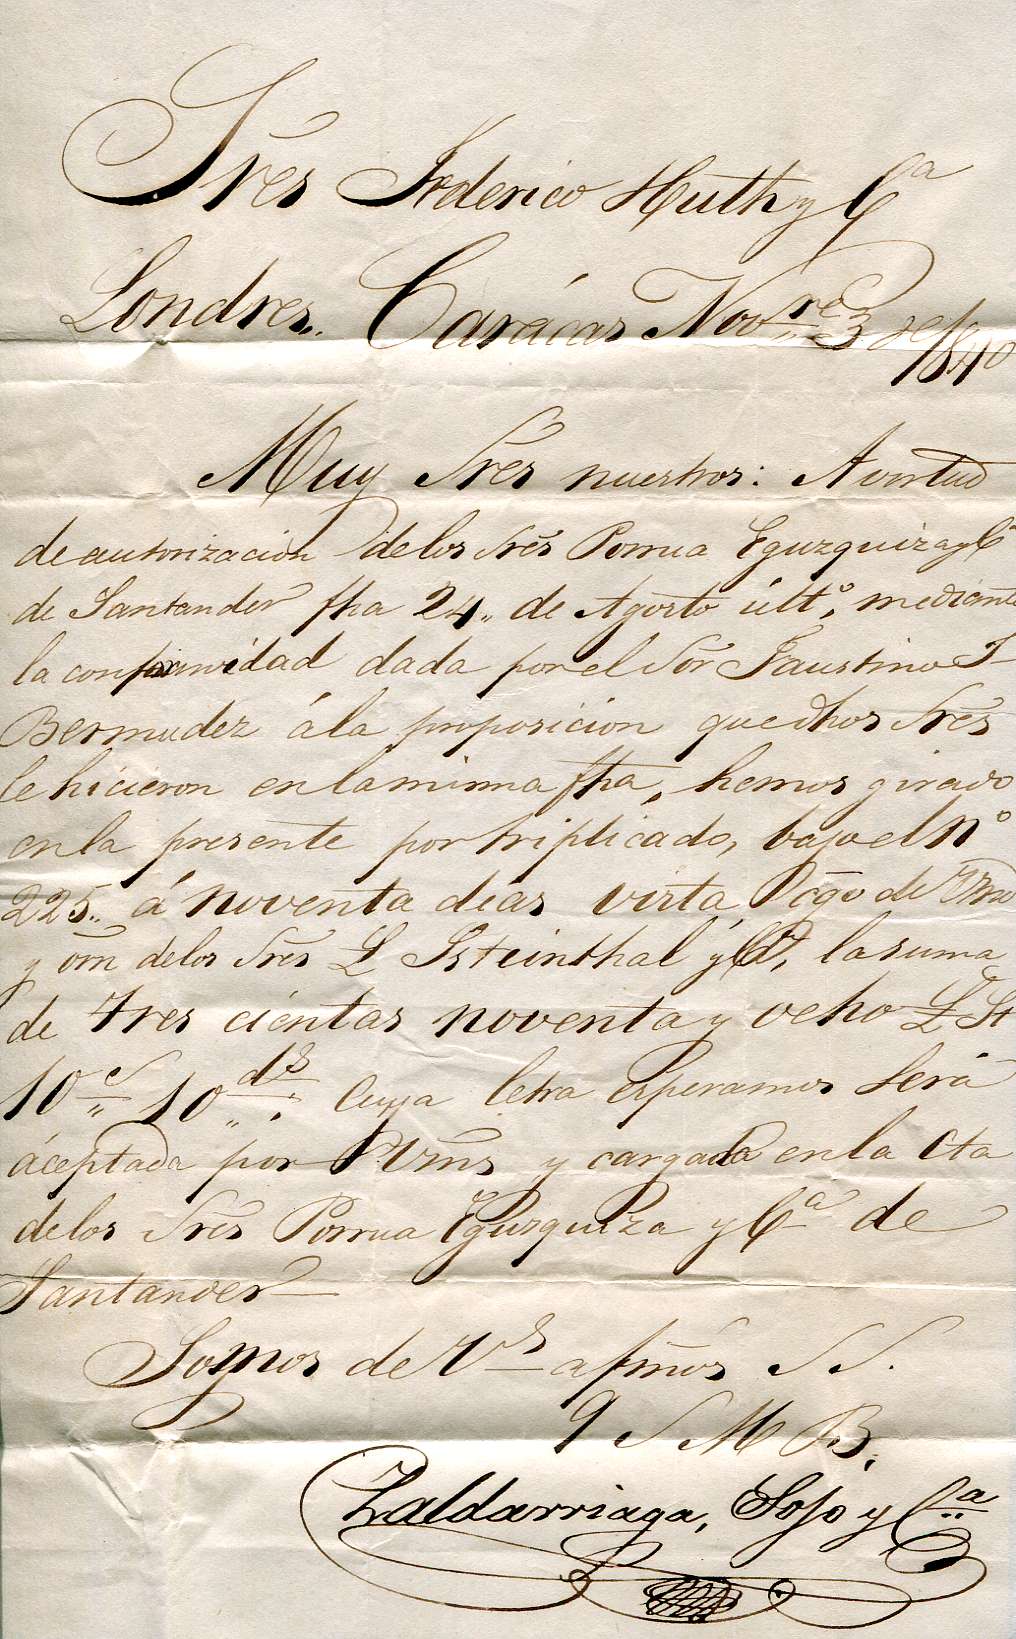 Sres Federico Huth y Cª
Londres. Carácas Novre 3 de 1840
Muy Sres nuestros: A virtud
de autorizacion de los Sres Porrua Eguzquiza y Cª
de Santander fha 24,, de Agosto últº, mediante
la conformidad dada por el Sor Faustino J
Bermudez á la proposicion que dhos Sres
le hicieron en la misma fha, hemos girado
en la presente por triplicado, bajo el Nº
225,, á noventa dias vista, Pcgo de Vms
y orn de los Sres L Isteinthal y Cª, la suma
de tres cientas noventa y ocho L St
10 s,, 10,, ds. Cuya letra esperamos será
áceptada por Vms y cargada en la Cta
de los Sres Porrua Eguzquiza y Cª de
Santander
Somos de Vs afmos S S.
Q S M B.
Zaldarriaga, Sojo y Cª